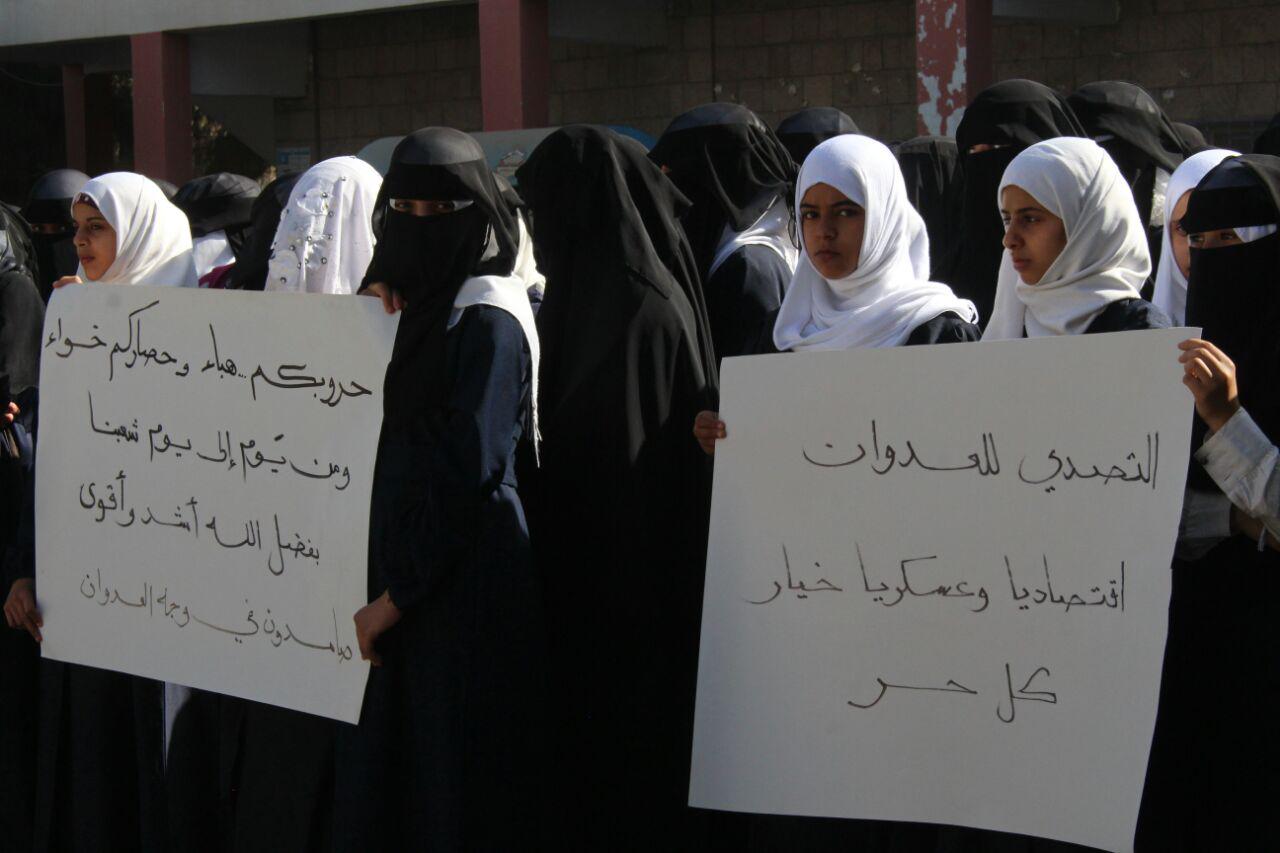 حروبكم..هباء وحصاركم خواء
ومن يَوم إلى يوم شعبنا
بفضل الله أشد وأقوى
صامدون في وجه العدوان
التصدي للعدوان
اقتصاديا وعسكريا خيار
كل حر